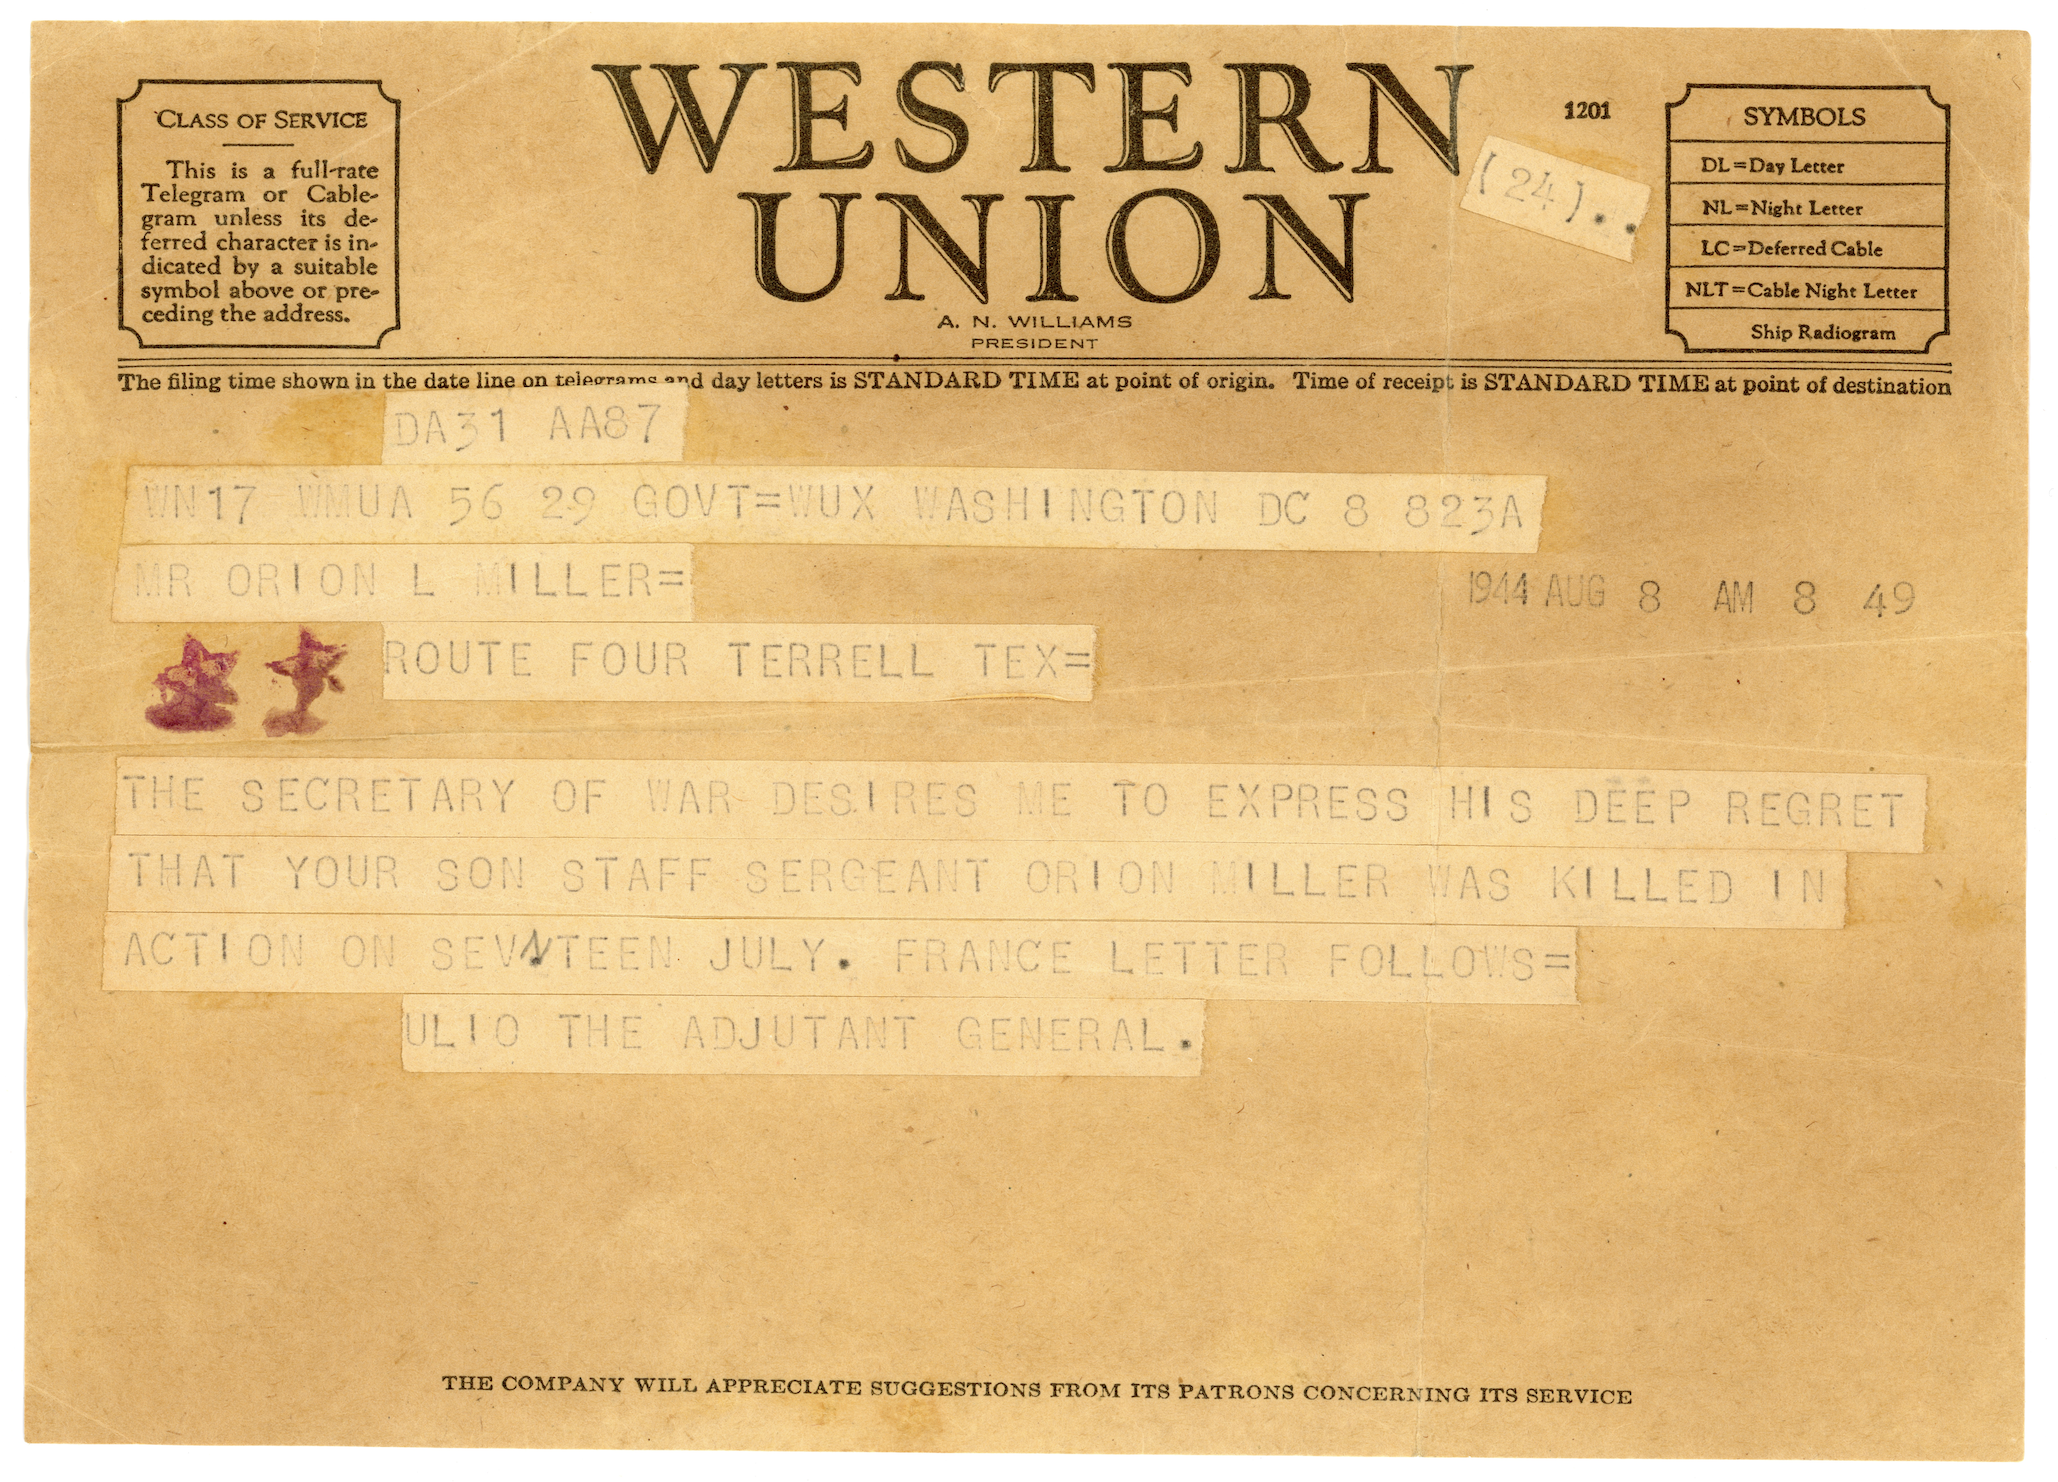 CLASS OF SERVICE
This is a full-rate
Telegram or Cable-
gram unless its de-
ferred character is in-
dicated by a suitable
symbol above or pre-
ceding the address.
WESTERN
UNION
A. N. WILLIAMS
PRESIDENT
1201
(24)..
SYMBOLS
DL=Day Letter
NL=Night Letter
LC=Deferred Cable
NLT=Cable Night Letter
Ship Radiogram
The filing time shown in the date line on telegrams and day letters is STANDARD TIME at point of origin. Time of receipt is STANDARD TIME at point of destination
DA31 AA87
WN17 WMUA 56 29 GOVT=WUX WASHINGTON DC 8 823A
MR ORION L MILLER=
1944 AUG 8 AM 8 49
ROUTE FOUR TERRELL TEX=
THE SECRETARY OF WAR DESIRES ME TO EXPRESS HIS DEEP REGRET
THAT YOUR SON STAFF SERGEANT ORION MILLER WAS KILLED IN
ACTION ON SEVNTEEN JULY. FRANCE LETTER FOLLOWS=
ULIO THE ADJUTANT GENERAL.
THE COMPANY WILL APPRECIATE SUGGESTIONS FROM ITS PATRONS CONCERNING ITS SERVICE